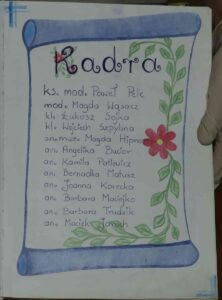 Kadra
ks. mod. Paweł Pelc
mod. Magda Wąsacz
kl. Łukasz Sojka
kl. Wojciech Szpytma
an. muz. Magda Hipner
an. Angelika Bucior
an. Kamila
an. Bernadka Matusz
an. Joanna Korecka
an. Barbara Maciejko
an. Barbara Trudzik
an. Maciek